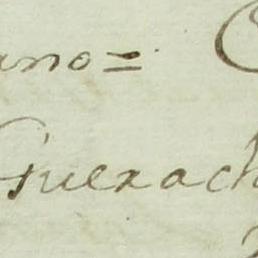 ano=
Guexach